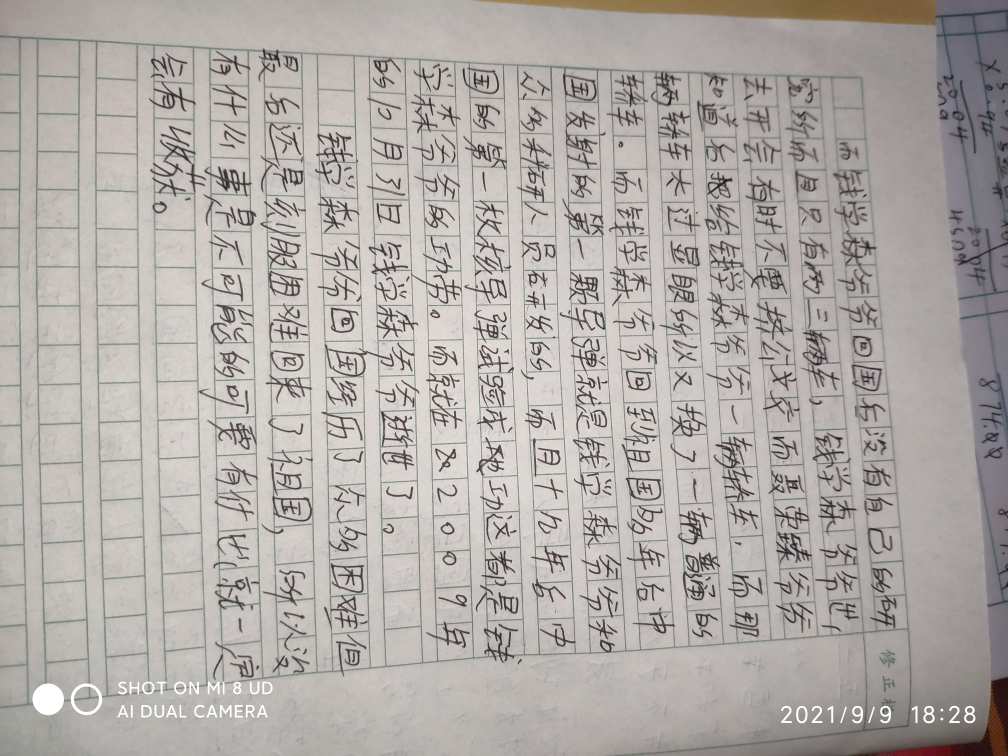 而钱学森爷爷回国后没有自己的研
究所而且只有两三辆车，钱学森爷爷出
去开会有时不要挤公交 而聂荣臻爷爷
知道后把给钱学森爷爷一辆轿车，而那
辆轿车太过显眼所以又换了一辆普通的
轿车。而钱学森爷爷回到祖国的年后中
国发射的第一颗导弹就是钱学森爷爷和
众的科研人员在开发的，而且十九年后中
国的第一枚核导弹试验成功这都是钱
学森爷爷的功劳。而就在2009年
的10月31日钱学森爷爷逝世了。
钱学森爷爷回国经历了众的困难但
最后还是克服困难回来了祖国，所以没
有什么事是不可能的可要有付出就一定
会有收获。
修正
SHOT ON MI 8 UD
AI DUAL CAMERA
2021/9/9 18:28